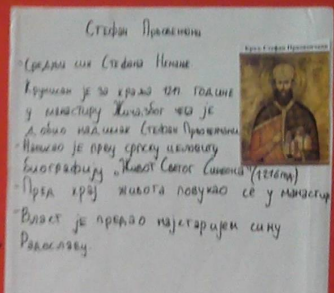 Стефан Првовенчани
Краљ Стефан Првовенчани
Средњи син Стефана Немање
Крунисан је за краља 1217. године
у манастиру Жича, због чега је
добио надимак Стефан Првовенчани
Написао је прву српску целовиту
биографију „Живот Светог Симеона" (1216год)
Пред крај живота повукао се у манастир
Власт је предао најстаријем сину
Радославу.